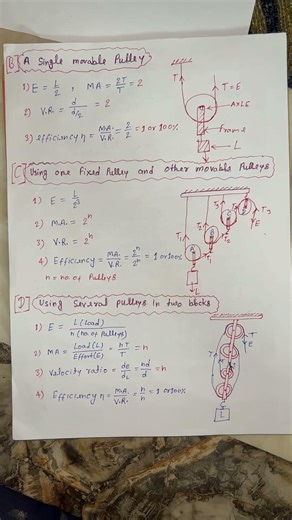 B) A Single movable Pulley
1) E = L/2 , MA = 2T/T = 2
2) V.R. = d/(d/2) = 2
3) efficiency η = MA/V.R. = 2/2 = 1 or 100%
T
T = E
AXLE
frame
L
C) Using one fixed Pulley and other movable Pulleys
1) E = L/2ⁿ
2) MA. = 2ⁿ
3) V.R. = 2ⁿ
4) Efficiency = MA./V.R. = 2ⁿ/2ⁿ = 1 or 100%
n = no. of Pulleys
T₁
T₁
T₂
T₂
T₃
T₃
E
L
D) Using Several pulleys in two blocks
1) E = L (Load)/n (no. of Pulleys)
2) MA = Load(L)/Effort(E) = nT/T = n
3) Velocity ratio = dE/dL = nd/d = n
4) Efficiency η = MA./V.R. = n/n = 1 or 100%
T
T
E
L